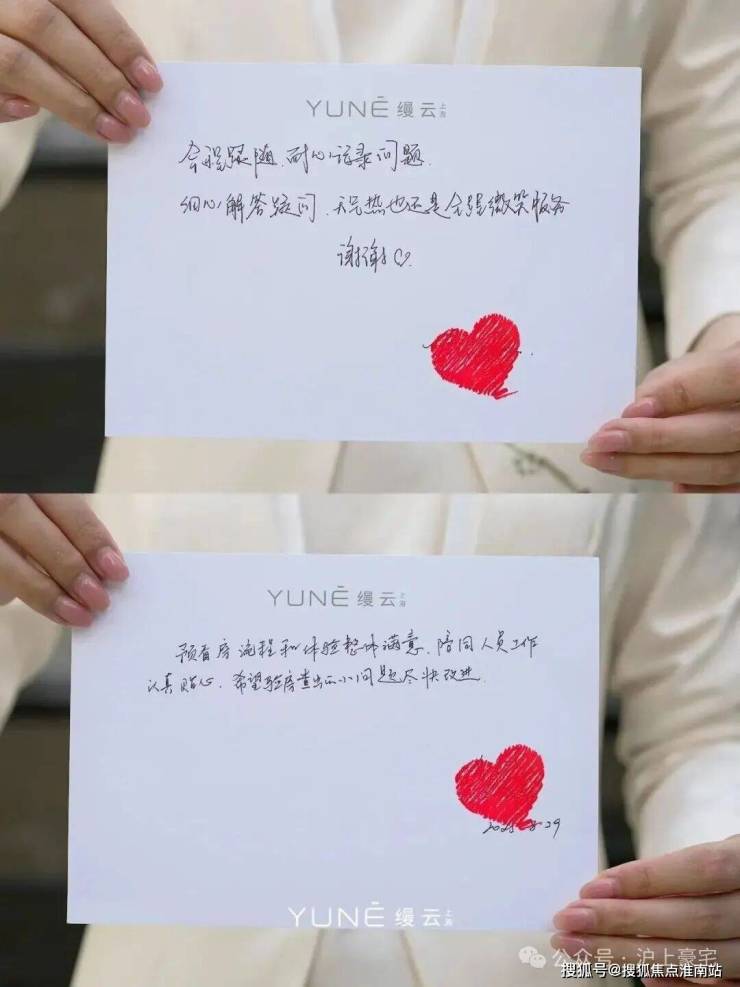 YUNĒ 缦云上海
全程跟随、耐心记录问题、
细心解答疑问、天气热也还是全程微笑服务
谢谢♡.
YUNĒ 缦云上海
预看房流程和体验整体满意、陪同人员工作
认真贴心、希望验房查出的小问题尽快改进
8-29
YUNĒ 缦云上海
公众号·沪上豪宅
搜狐号@搜狐焦点淮南站